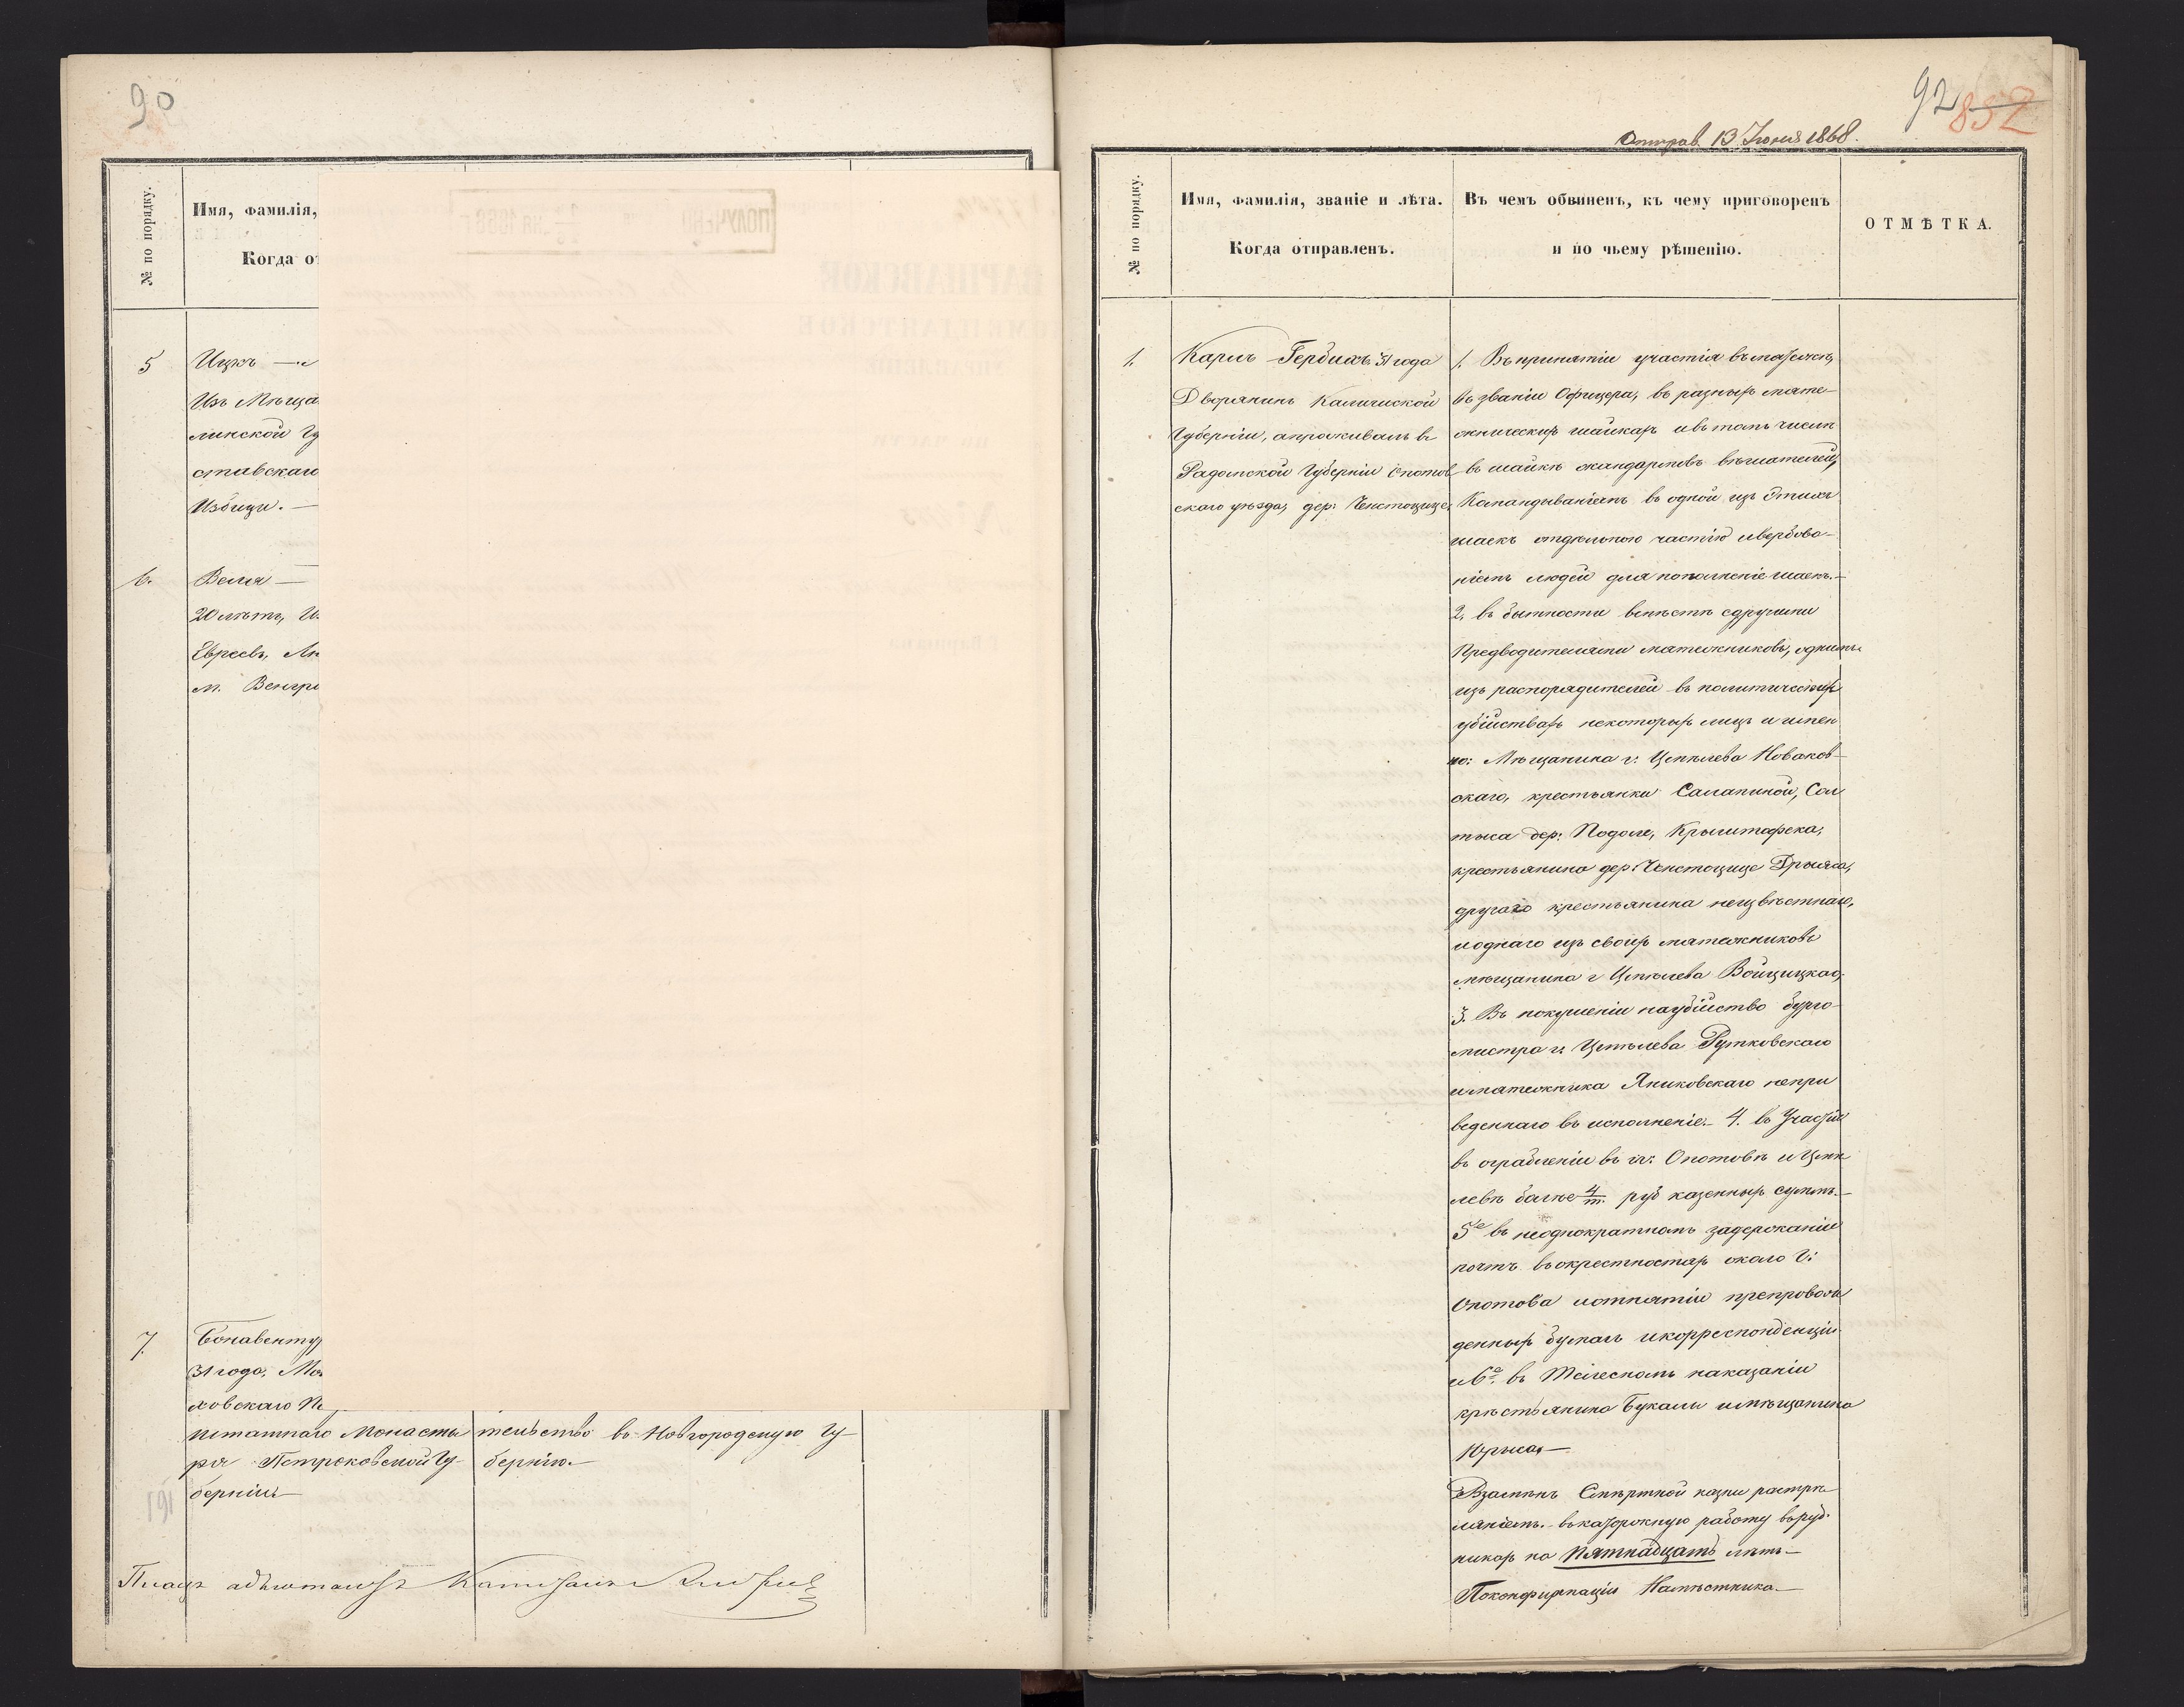 90
№ по порядку.
Имя, фамилія,
Когда от
5
Ицкъ —
Изъ Мѣща
линской Гу
ставскаго
Избици. —
6.
Велія —
20 лѣтъ, И
Евреевъ, Лю
м. Венгр
7.
Бонавентур
31 года, Мо
ховскаго
штатнаго Монасты
ря Петроковской Гу-
берніи —
тельство въ Новгородскую Гу-
бернію.—
Плацъ адъютантъ Капитанъ
92
852
Отправ. 13 Іюня 1868.
№ по порядку.
Имя, фамилія, званіе и лѣта.
Когда отправленъ.
Въ чемъ обвиненъ, къ чему приговоренъ
и по чьему рѣшенію.
ОТМѢТКА.
1.
Карлъ Гербихъ 31 года
Дворянинъ Калишской
Губерніи, апроживалъ въ
Радомской Губерніи Опотов
скаго уѣзда, дер: Ченстоцице,
1. Въ принятіи участія въ мятежѣ,
въ званіи Офицера, въ разныхъ мяте-
жническихъ шайкахъ ивъ томъ числѣ
въ шайкѣ жандармовъ вѣшателей,
Командываніемъ въ одной изъ этихъ
шаекъ отдѣльною частію ивербова-
ніемъ людей для пополненіе шаекъ.—
2, въ бытности вмѣстѣ сдругими
Предводителями мятежниковъ, однимъ
изъ распорядителей въ политическихъ
убійствахъ некоторыхъ лицъ и имен
но: Мѣщанина г: Цмѣлева Новаков-
скаго, крестьянки Салапиной, Сол
тыса дер: Подоле, Крыштофека,
крестьянина дер: Ченстоцице Дрыяса,
другаго крестьянина неизвѣстнаго,
иоднаго изъ своихъ мятежниковъ
мѣщанина г Цмѣлева Войцицкаго,
3. Въ покушеніи наубійство бурго-
мистра г: Цмѣлева Рутковскаго
имятежника Яниковскаго непри
веденнаго въ исполненіе.— 4. въ Участіи
въ ограбленіи въ гг: Опотовѣ и Цмѣ
левѣ болѣе 4/т. руб казенныхъ суммъ.—
5е въ неоднократномъ задержаніи
почтъ въокрестностяхъ около г:
Опотова иотнятіи препровож
денныхъ бумагъ икорреспонденціи
и6е. въ Тѣлесномъ наказаніи
крѣстьянина Букалы имѣщанина
Юрыса,—
Взамѣнъ Смѣртной казни растрѣ
ляніемъ.— въкаторжную работу въруд-
никахъ на Пятнадцать лѣтъ—
Поконфирмаціи Намѣстника.—